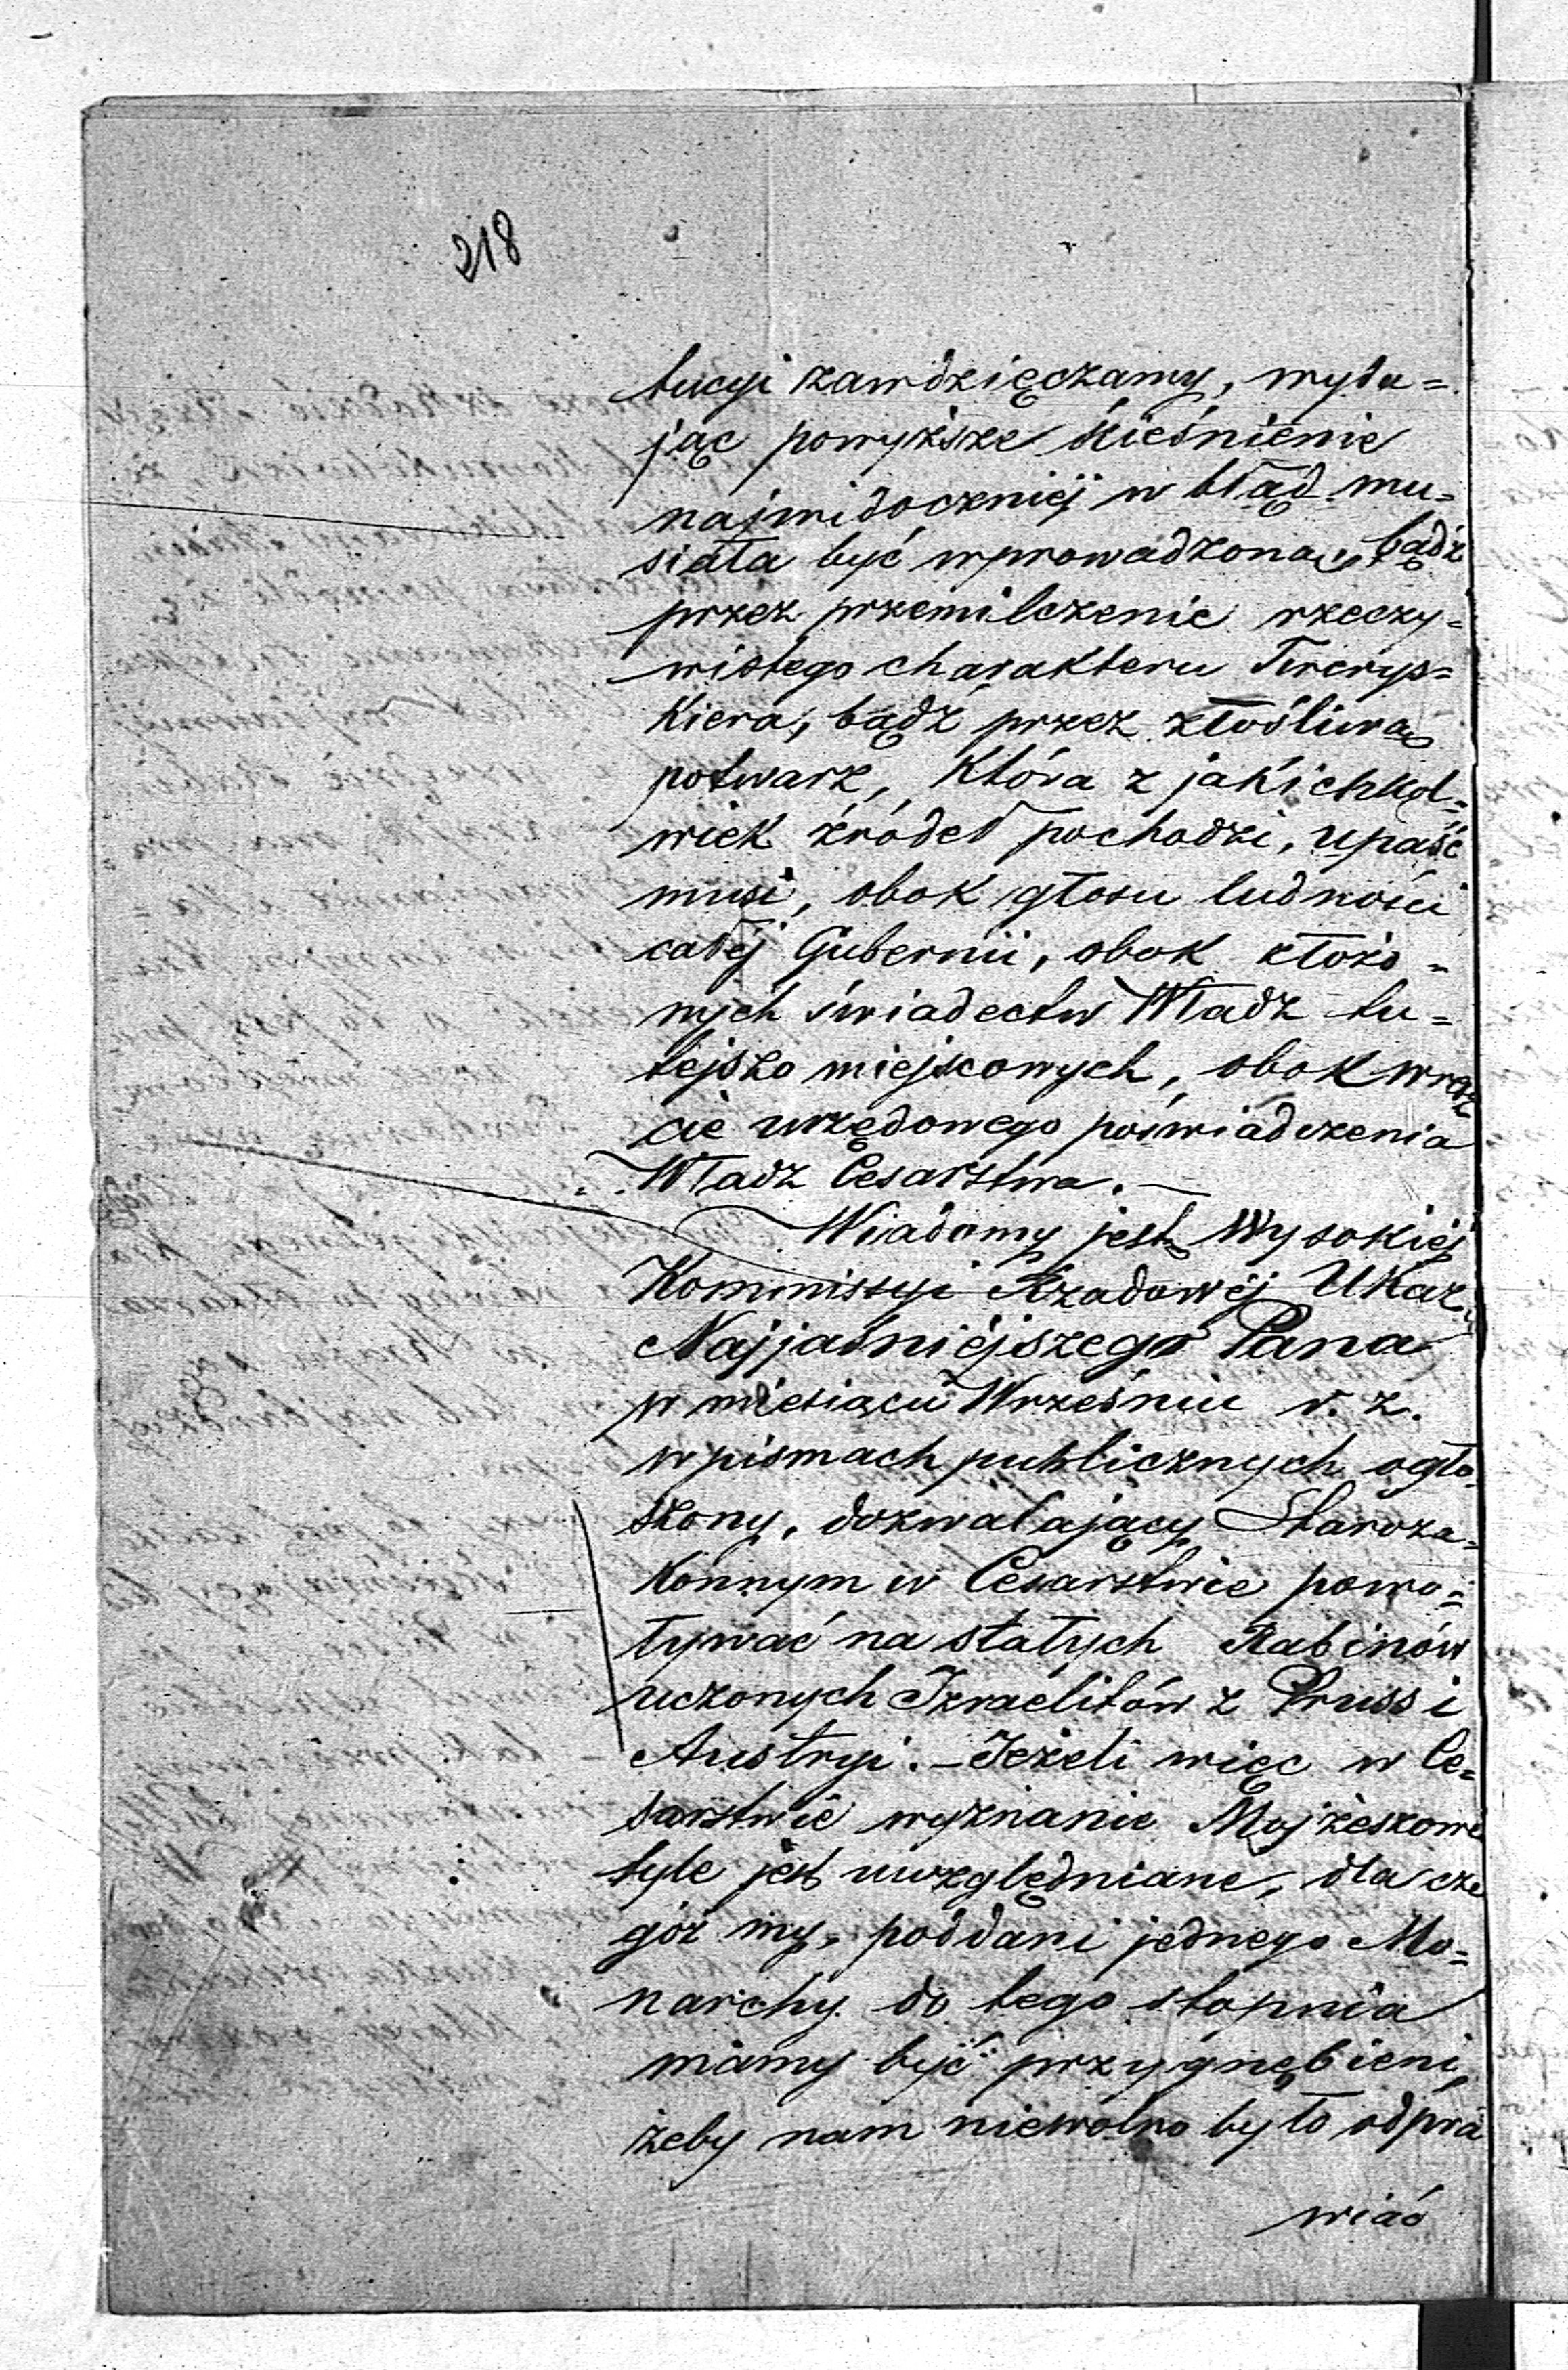 218
tucyi zawdzięczamy, wyda=
jąc powyższe ścieśnienie
najwidoczniéj w błąd mu=
siała być wprowadzoną, bądź
przez przemilczenie rzeczy=
wistego charakteru
kiera, bądź przez złośliwą
potwarz, która z jakichkol=
wiek źródeł pochodzi, upaść
musi, obok głosu ludności
całéj Gubernii, obok złożo=
nych świadectw Władz tu=
tejszo miejscowych, obok wresz
cie urzędowego poświadczenia
Władz Cesarstwa. —
Wiadomy jest Wysokiéj
Kommissyi Rządowéj Ukaz
Najjaśniéjszego Pana
w miesiącu Wrześniu r. z.
w pismach publicznych ogło
szony, dozwalający Staroza=
konnym w Cesarstwie powo=
ływać na stałych Rabinów
uczonych Izraelitów z Pruss i
Austryi. — Jeżeli więc w Ce=
sarstwie wyznanie Mojżeszowe
tyle jest uwzględniane, dla cze
goż my, poddani jednego Mo=
narchy do tego stopnia
mamy być przygnębieni,
żeby nam niewolno było odpra
wiać